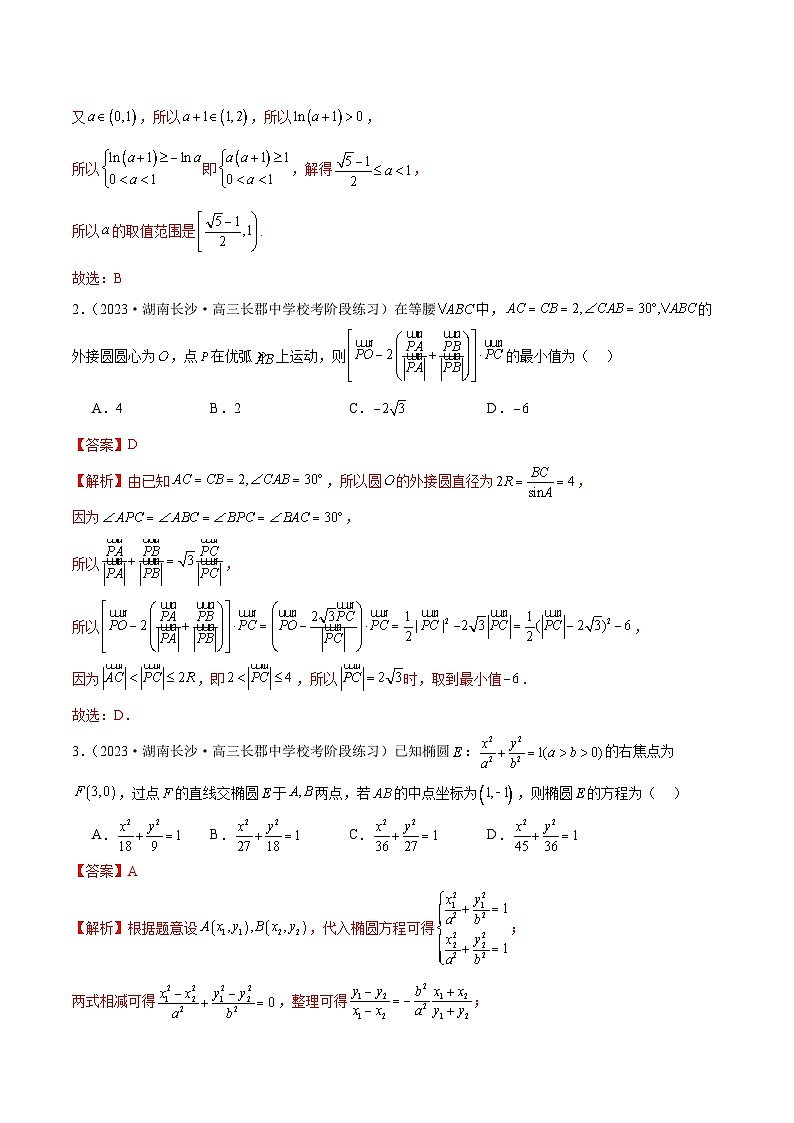 又a∈(0,1),所以a+1∈(1,2),所以ln(a+1)>0,
所以{ln(a+1)≥-ln a 0<a<1 即{a(a+1)≥1 0<a<1 ,解得 (√5-1)/2≤a<1,
所以a的取值范围是[(√5-1)/2,1).
故选:B
2.(2023·湖南长沙·高三长郡中学校考阶段练习)在等腰VABC中,AC=CB=2,∠CAB=30°,VABC的
外接圆圆心为O,点P在优弧AB上运动,则[PO-2(PA/|PA|+PB/|PB|)]·PC的最小值为( )
A.4 B.2 C.-2√3 D.-6
【答案】D
【解析】由已知AC=CB=2,∠CAB=30°,所以圆O的外接圆直径为2R=BC/sinA=4,
因为∠APC=∠ABC=∠BPC=∠BAC=30°,
所以PA/|PA|+PB/|PB|=√3PC/|PC|,
所以[PO-2(PA/|PA|+PB/|PB|)]·PC=(PO-2√3PC/|PC|)·PC=1/2|PC|²-2√3|PC|=1/2(|PC|-2√3)²-6,
因为|AC|<|PC|≤2R,即2<|PC|≤4,所以|PC|=2√3时,取到最小值-6.
故选:D.
3.(2023·湖南长沙·高三长郡中学校考阶段练习)已知椭圆E:x²/a²+y²/b²=1(a>b>0)的右焦点为
F(3,0),过点F的直线交椭圆E于A,B两点,若AB的中点坐标为(1,-1),则椭圆E的方程为( )
A.x²/18+y²/9=1 B.x²/27+y²/18=1 C.x²/36+y²/27=1 D.x²/45+y²/36=1
【答案】A
【解析】根据题意设A(x₁,y₁),B(x₂,y₂),代入椭圆方程可得{x₁²/a²+y₁²/b²=1 x₂²/a²+y₂²/b²=1;
两式相减可得(x₁²-x₂²)/a²+(y₁²-y₂²)/b²=0,整理可得(y₁-y₂)/(x₁-x₂)=-b²/a² (x₁+x₂)/(y₁+y₂);